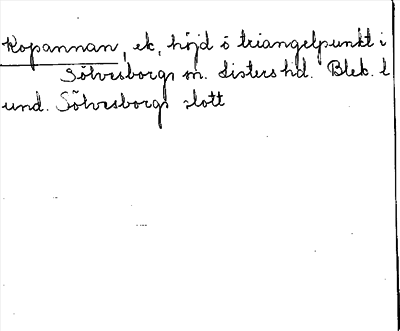 Kopannan, ek, höjd o triangelpunkt i
Sölvesborgs m. Listers hd. Blek. l
und. Sölvesborgs slott